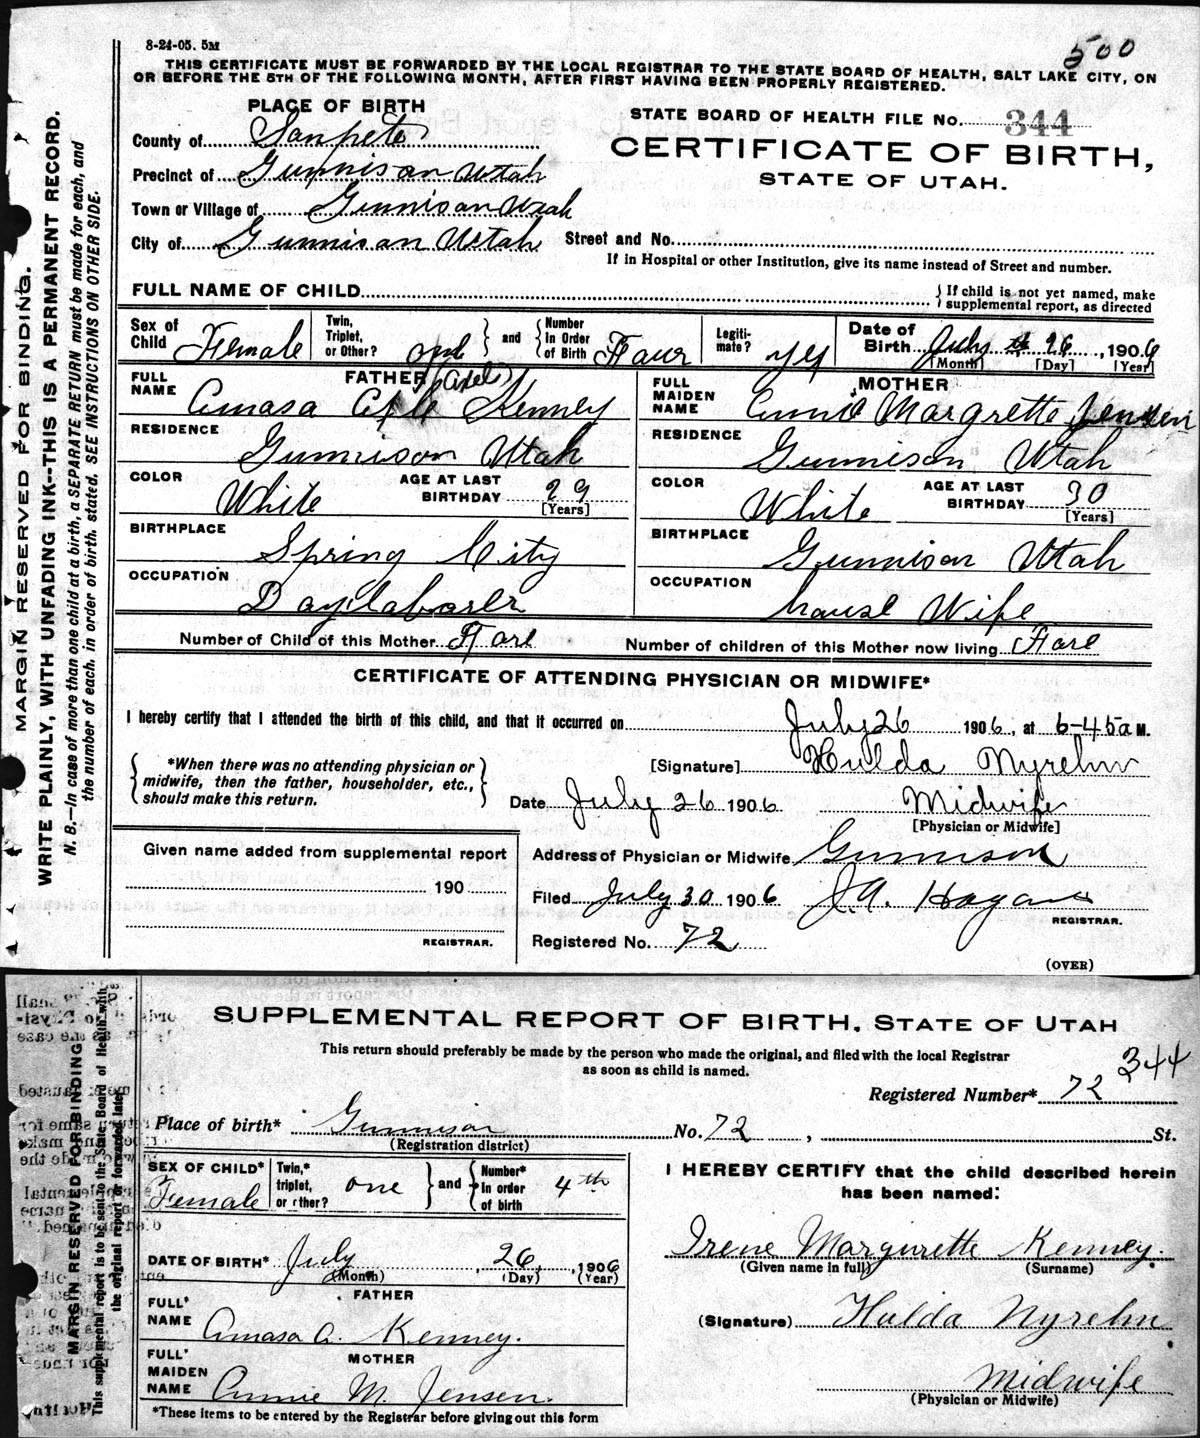 8-24-05. 5M
500
THIS CERTIFICATE MUST BE FORWARDED BY THE LOCAL REGISTRAR TO THE STATE BOARD OF HEALTH, SALT LAKE CITY, ON
OR BEFORE THE 5TH OF THE FOLLOWING MONTH, AFTER FIRST HAVING BEEN PROPERLY REGISTERED.
MARGIN RESERVED FOR BINDING.
WRITE PLAINLY, WITH UNFADING INK--THIS IS A PERMANENT RECORD.
N. B.—In case of more than one child at a birth, a SEPARATE RETURN must be made for each, and
the number of each, in order of birth, stated. SEE INSTRUCTIONS ON OTHER SIDE.
PLACE OF BIRTH
County of Sanpete
Precinct of Gunnison Utah
Town or Village of Gunnison Utah
City of Gunnison Utah
STATE BOARD OF HEALTH FILE No. 344
CERTIFICATE OF BIRTH,
STATE OF UTAH.
Street and No.
If in Hospital or other Institution, give its name instead of Street and number.
FULL NAME OF CHILD
If child is not yet named, make
supplemental report, as directed
Sex of Child Female
Twin, Triplet, or Other? one
and Number In Order of Birth Faur
Legiti- mate? yes
Date of Birth July 26, 1906
[Month] [Day] [Year]
FATHER
FULL NAME Amasa (Axel) Kenney
RESIDENCE Gunnison Utah
COLOR White
AGE AT LAST BIRTHDAY 29
[Years]
BIRTHPLACE Spring City
OCCUPATION Day laborer
MOTHER
FULL MAIDEN NAME Annie Margrette Jensen
RESIDENCE Gunnison Utah
COLOR White
AGE AT LAST BIRTHDAY 30
[Years]
BIRTHPLACE Gunnison Utah
OCCUPATION house Wife
Number of Child of this Mother Fore
Number of children of this Mother now living Fore
CERTIFICATE OF ATTENDING PHYSICIAN OR MIDWIFE*
I hereby certify that I attended the birth of this child, and that it occurred on July 26 1906, at 6-45 a M.
*When there was no attending physician or
midwife, then the father, householder, etc.,
should make this return.
[Signature] Hulda Nyrehn
Date July 26 1906 Midwife
[Physician or Midwife]
Given name added from supplemental report
190
REGISTRAR.
Address of Physician or Midwife Gunnison
Filed July 30 1906 J.A. Hagan
REGISTRAR.
Registered No. 72
(OVER)
MARGIN RESERVED FOR BINDING
This supplemental report is to be sent to the State Board of Health with
the original report or forwarded later.
SUPPLEMENTAL REPORT OF BIRTH, STATE OF UTAH
This return should preferably be made by the person who made the original, and filed with the local Registrar
as soon as child is named.
344
Registered Number* 72
Place of birth* Gunnison No. 72, St.
(Registration district)
SEX OF CHILD* Female
Twin,* triplet, or other? one
and Number* in order of birth 4th
DATE OF BIRTH* July 26, 1906
(Month) (Day) (Year)
FATHER
FULL* NAME Amasa A. Kenney.
MOTHER
FULL* MAIDEN NAME Annie M. Jensen.
*These items to be entered by the Registrar before giving out this form
I HEREBY CERTIFY that the child described herein
has been named:
Irene Margurette Kenney.
(Given name in full) (Surname)
(Signature) Hulda Nyrehn
Midwife
(Physician or Midwife)